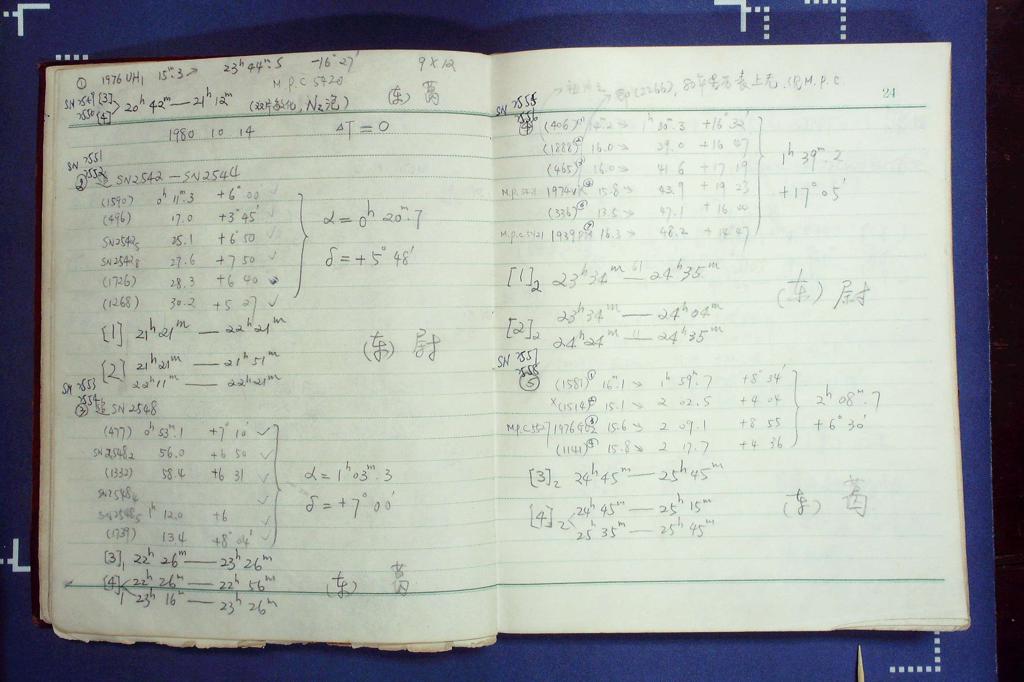 ① 1976 UH₁ 15ᵐ.3 → 23ʰ44ᵐ.5 -16°27′ 9×12
M.P.C 5420
SN 2549 [3]
2550 [4] 20ʰ42ᵐ — 21ʰ12ᵐ (双片敏化, N₂泡) (东) 葛
1980 10 14 ΔT=0
SN 2551
2552
② SN2542 — SN2544
(1590) 0ʰ11ᵐ.3 +6°00′ ✓
(496) 17.0 +3°45′ ✓
25.1 +6 50 ✓
27.6 +7 50 ✓
(1726) 28.3 +6 40 ✓
(1268) 30.2 +5 27 ✓
α=0ʰ20ᵐ.7
δ=+5°48′
[1] 21ʰ21ᵐ — 22ʰ21ᵐ
[2] 21ʰ21ᵐ — 21ʰ51ᵐ
22ʰ11ᵐ — 22ʰ21ᵐ
(东) 尉
SN 2553
2554
③ SN2548
(477) 0ʰ53ᵐ.1 +7°10′ ✓
SN2548₂ 56.0 +6 50 ✓
(1332) 58.4 +6 31 ✓
SN2548₄ ✓
SN2548₅ 1ʰ12.0 +6 ✓
(1739) 13.4 +8°04′ ✓
α=1ʰ03ᵐ.3
δ=+7°00′
[3]₁ 22ʰ26ᵐ — 23ʰ26ᵐ
[4]₁ 22ʰ26ᵐ — 22ʰ56ᵐ
23ʰ16ᵐ — 23ʰ26ᵐ
(东) 葛
24
即(2266), 80年 表上无, 仅M.P.C.
SN 2555
2556
④ (406) 14.2 → 1ʰ30ᵐ.3 +16°32′
(1888) 16.0 → 29.0 +16 47
(465) 16.0 → 41.6 +17 19
15.8 → 43.9 +19 23
(336) 13.5 → 47.1 +16 00
M.P.C5421 16.3 → 48.2 +14 47
1ʰ39ᵐ.2
+17°05′
[1]₂ 23ʰ34ᵐ — 24ʰ35ᵐ
[2]₂ 23ʰ34ᵐ — 24ʰ04ᵐ
24ʰ24ᵐ — 24ʰ35ᵐ
(东) 尉
SN 2557
2558
⑤ (1581) 16ᵐ.1 → 1ʰ59ᵐ.7 +8°34′
×(1514) 15.1 → 2 02.5 +4 04
15.6 → 2 09.1 +8 55
(1141) 15.8 → 2 17.7 +4 36
2ʰ08ᵐ.7
+6°30′
[3]₂ 24ʰ45ᵐ — 25ʰ45ᵐ
[4]₂ 24ʰ45ᵐ — 25ʰ15ᵐ
25ʰ35ᵐ — 25ʰ45ᵐ
(东) 葛